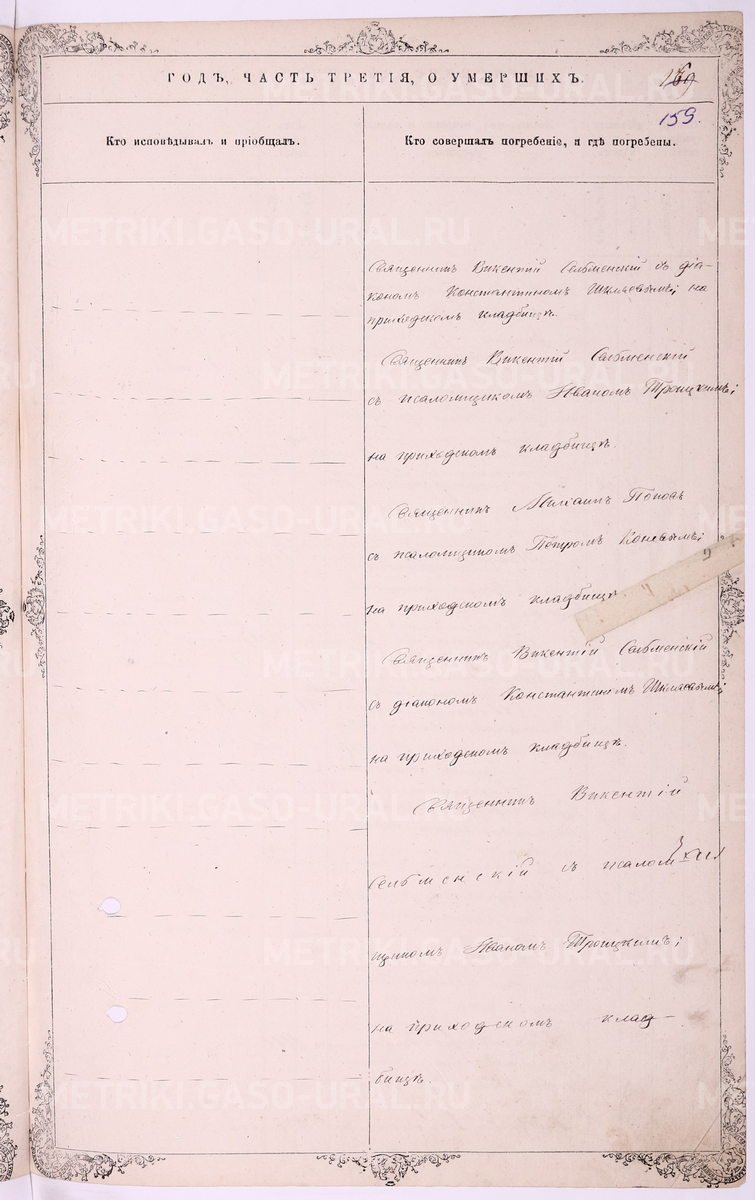 ГОДЪ, ЧАСТЬ ТРЕТІЯ, О УМЕРШИХЪ.
169
159.
Кто исповѣдывалъ и пріобщалъ.
Кто совершалъ погребеніе, и гдѣ погребены.
METRIKI.GASO-URAL.RU
Священникъ Викентій Сельменскій съ діа-
кономъ Константиномъ Шкляевымъ; на
приходскомъ кладбищѣ.
Священникъ Викентій Сельменскій
съ псаломщикомъ Иваномъ Троицкимъ;
на приходскомъ кладбищѣ.
Священникъ Михаилъ Поповъ
съ псаломщикомъ Петромъ Коневымъ;
на приходскомъ кладбищѣ
Священникъ Викентій Сельменскій
съ діакономъ Константиномъ Шкляевымъ;
на приходскомъ кладбищѣ.
Священникъ Викентій
Сельменскій съ псалом
щикомъ Иваномъ Троицкимъ;
на приходскомъ клад-
бищѣ.